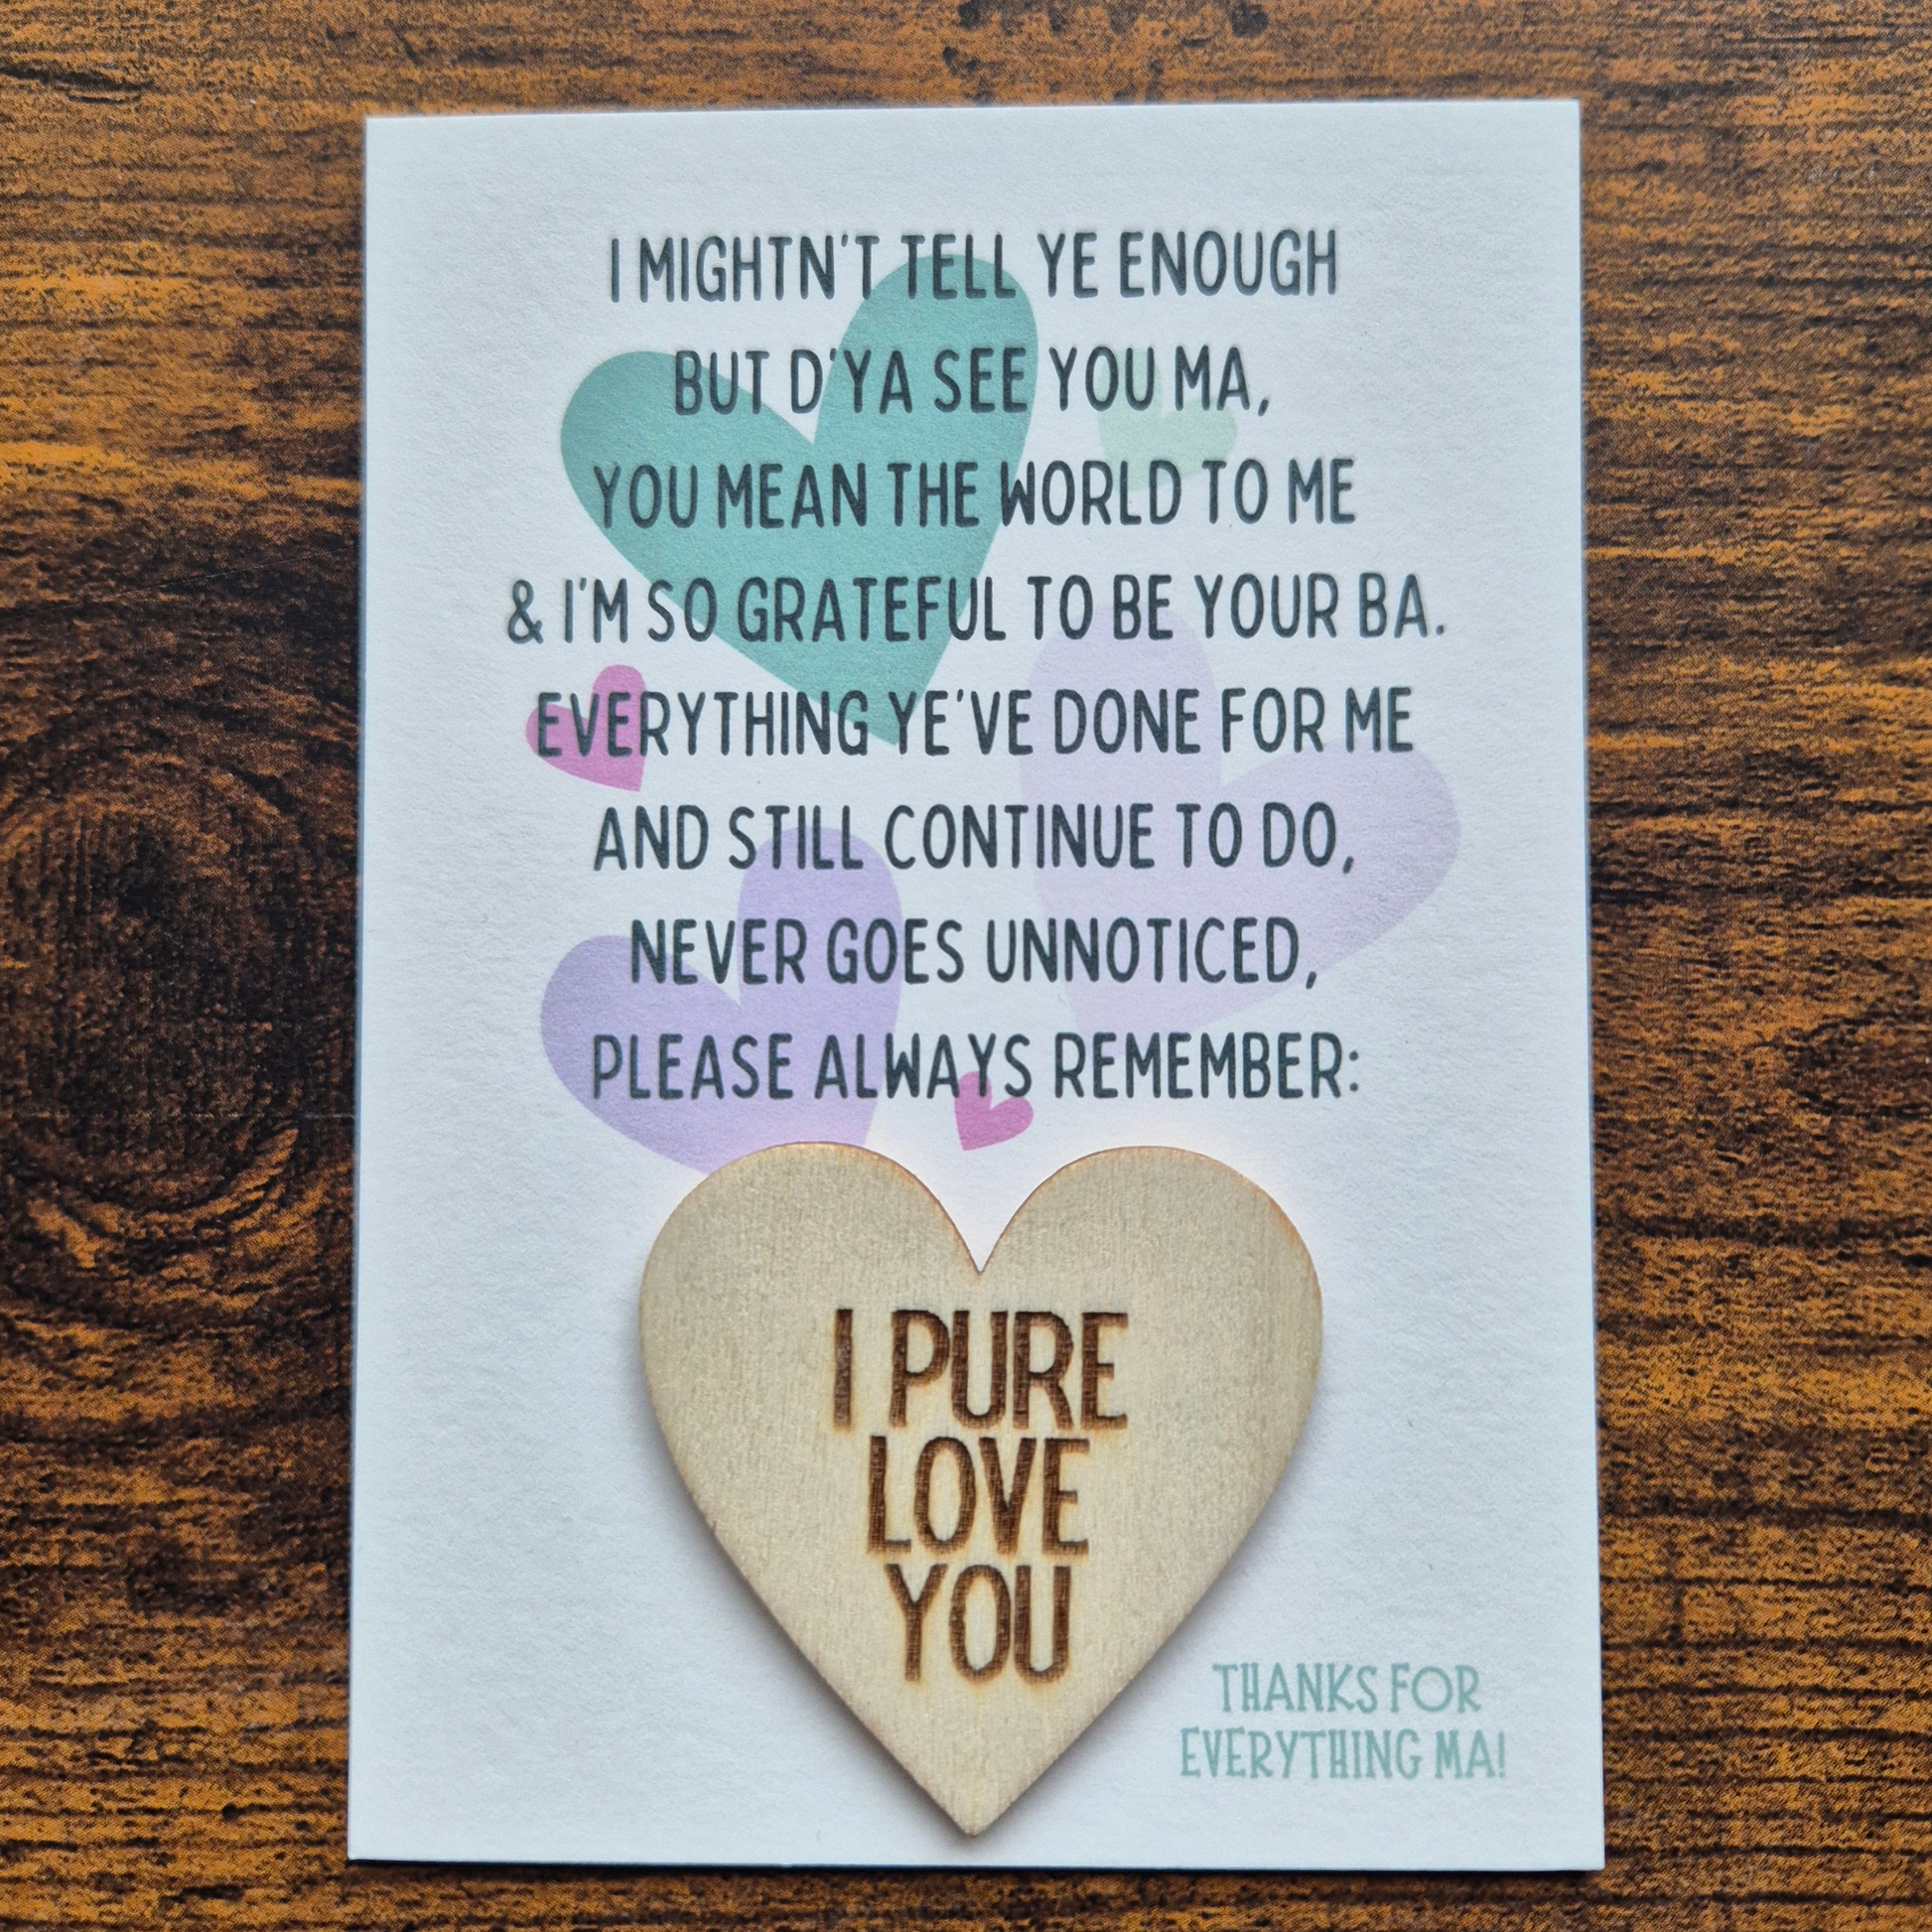 I MIGHTN'T TELL YE ENOUGH
BUT D'YA SEE YOU MA,
YOU MEAN THE WORLD TO ME
& I'M SO GRATEFUL TO BE YOUR BA.
EVERYTHING YE'VE DONE FOR ME
AND STILL CONTINUE TO DO,
NEVER GOES UNNOTICED,
PLEASE ALWAYS REMEMBER:
I PURE
LOVE
YOU
THANKS FOR
EVERYTHING MA!